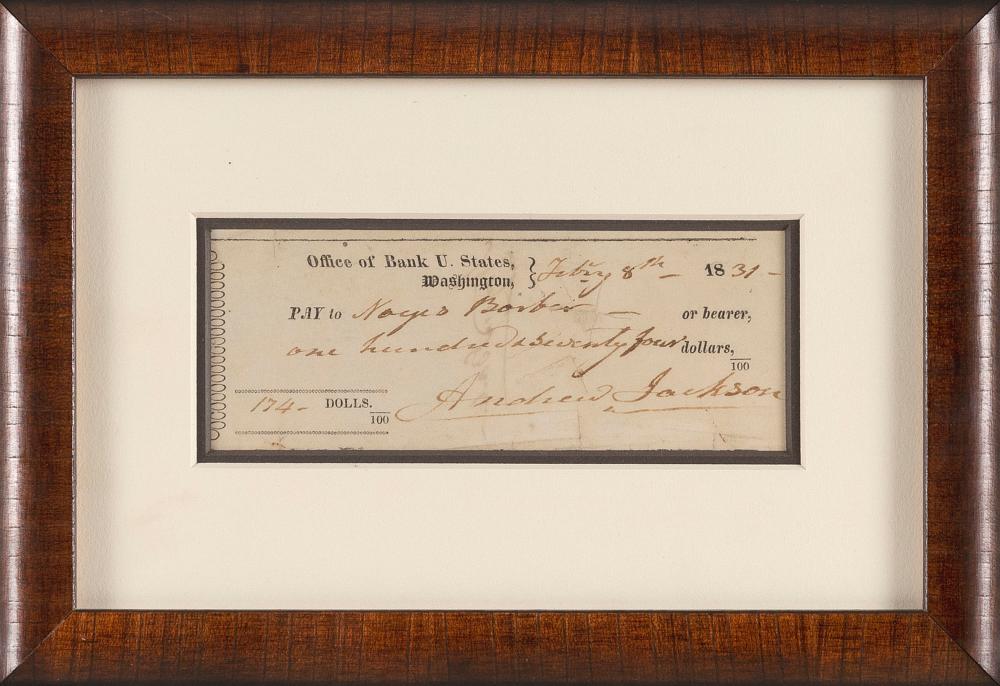 Office of Bank U. States, } Febry 8th 1831
Washington,
PAY to Noyes Barber or bearer,
one hundred & seventy four dollars, /100
174 DOLLS. /100
Andrew Jackson